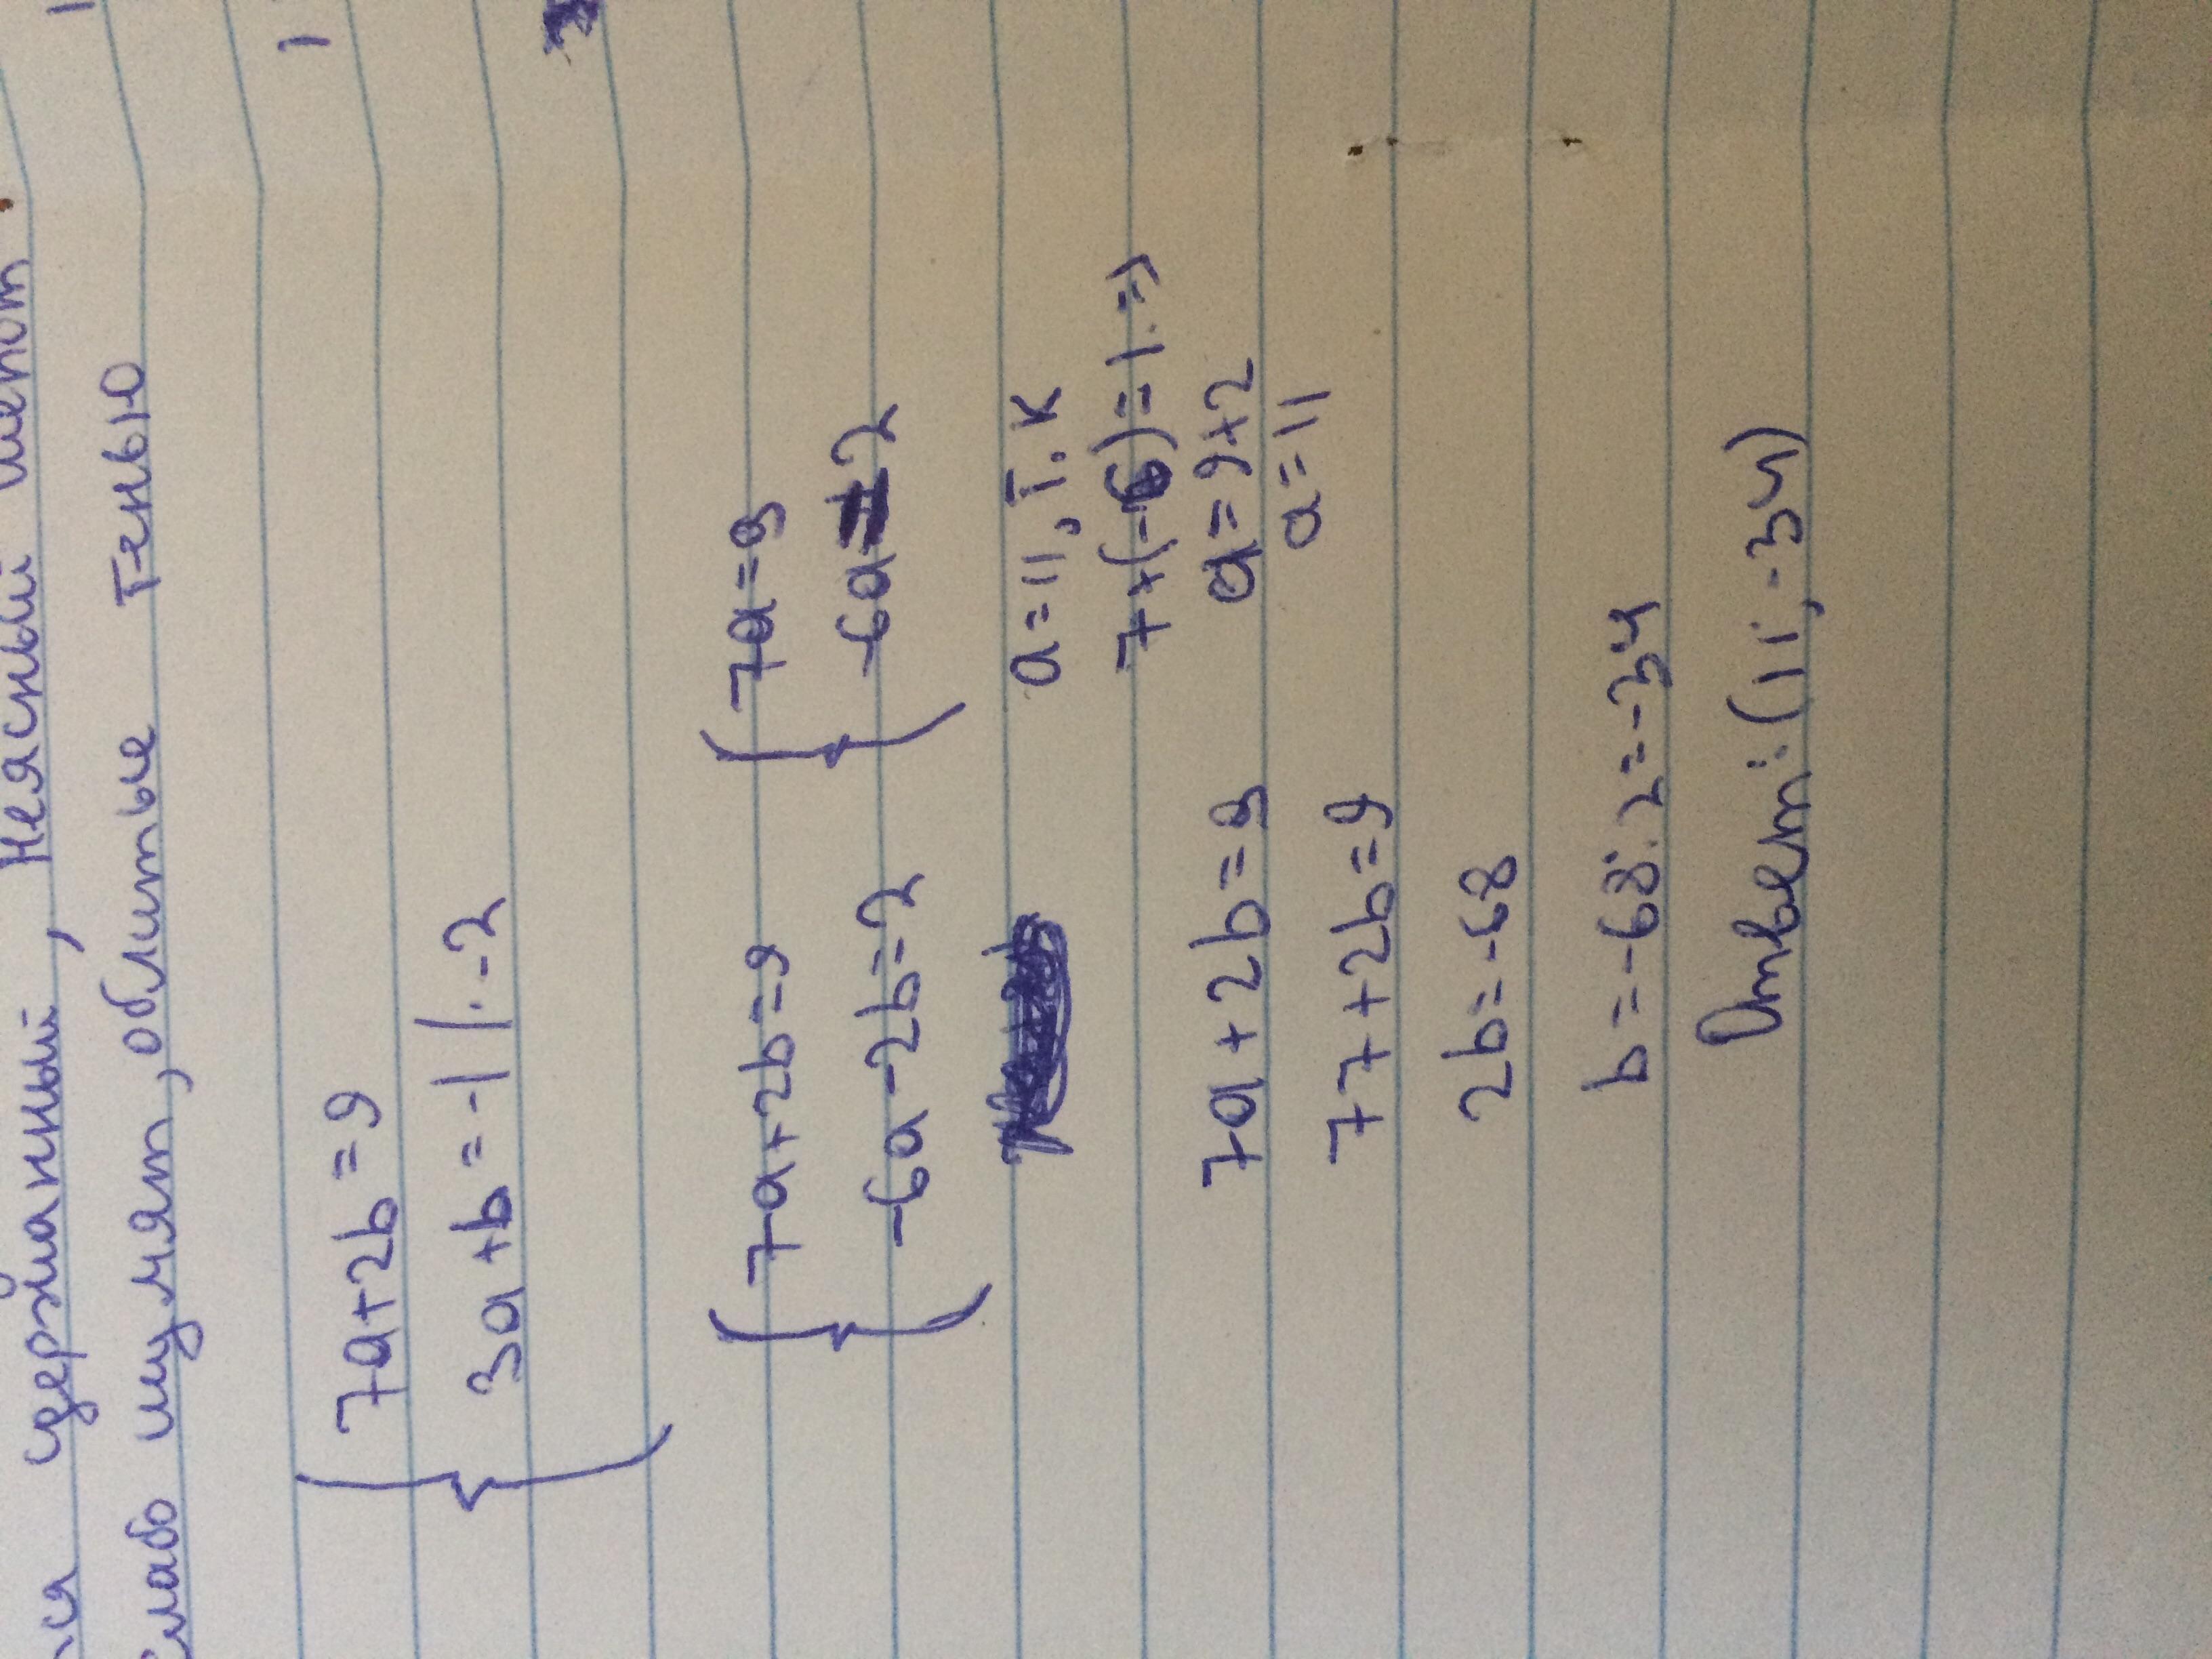 сдержанный, неясный шепот.
Слабо шумят, облитые тенью
7a+2b=9
3a+b=-1 | · -2
7a+2b=9
-6a-2b=2
7a=9
-6a=2
a=11, т.к
7+(-6)=1 =>
a=9+2
a=11
7a+2b=9
77+2b=9
2b=-68
b=-68:2=-34
Ответ: (11; -34)